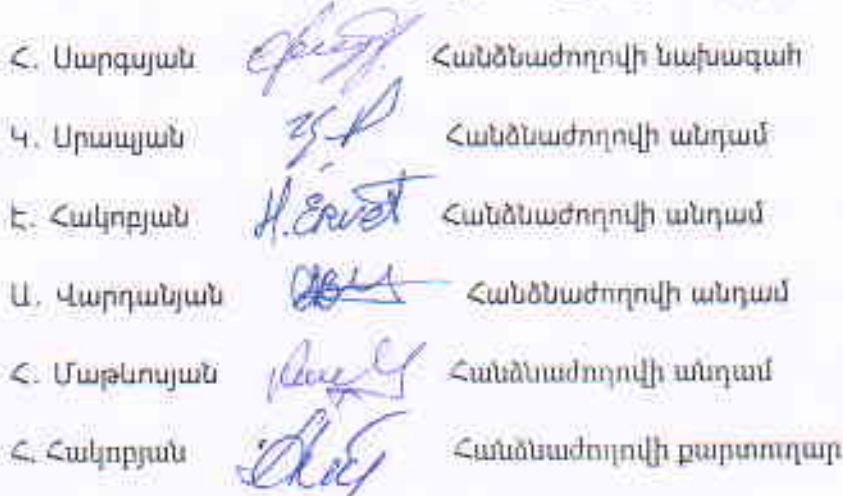 Հ. Սարգսյան Հանձնաժողովի նախագահ
Կ. Սրապյան Հանձնաժողովի անդամ
Է. Հակոբյան H. Ervet Հանձնաժողովի անդամ
Ա. Վարդանյան Հանձնաժողովի անդամ
Հ. Մաթևոսյան Հանձնաժողովի անդամ
Հ. Հակոբյան Հանձնաժողովի քարտուղար